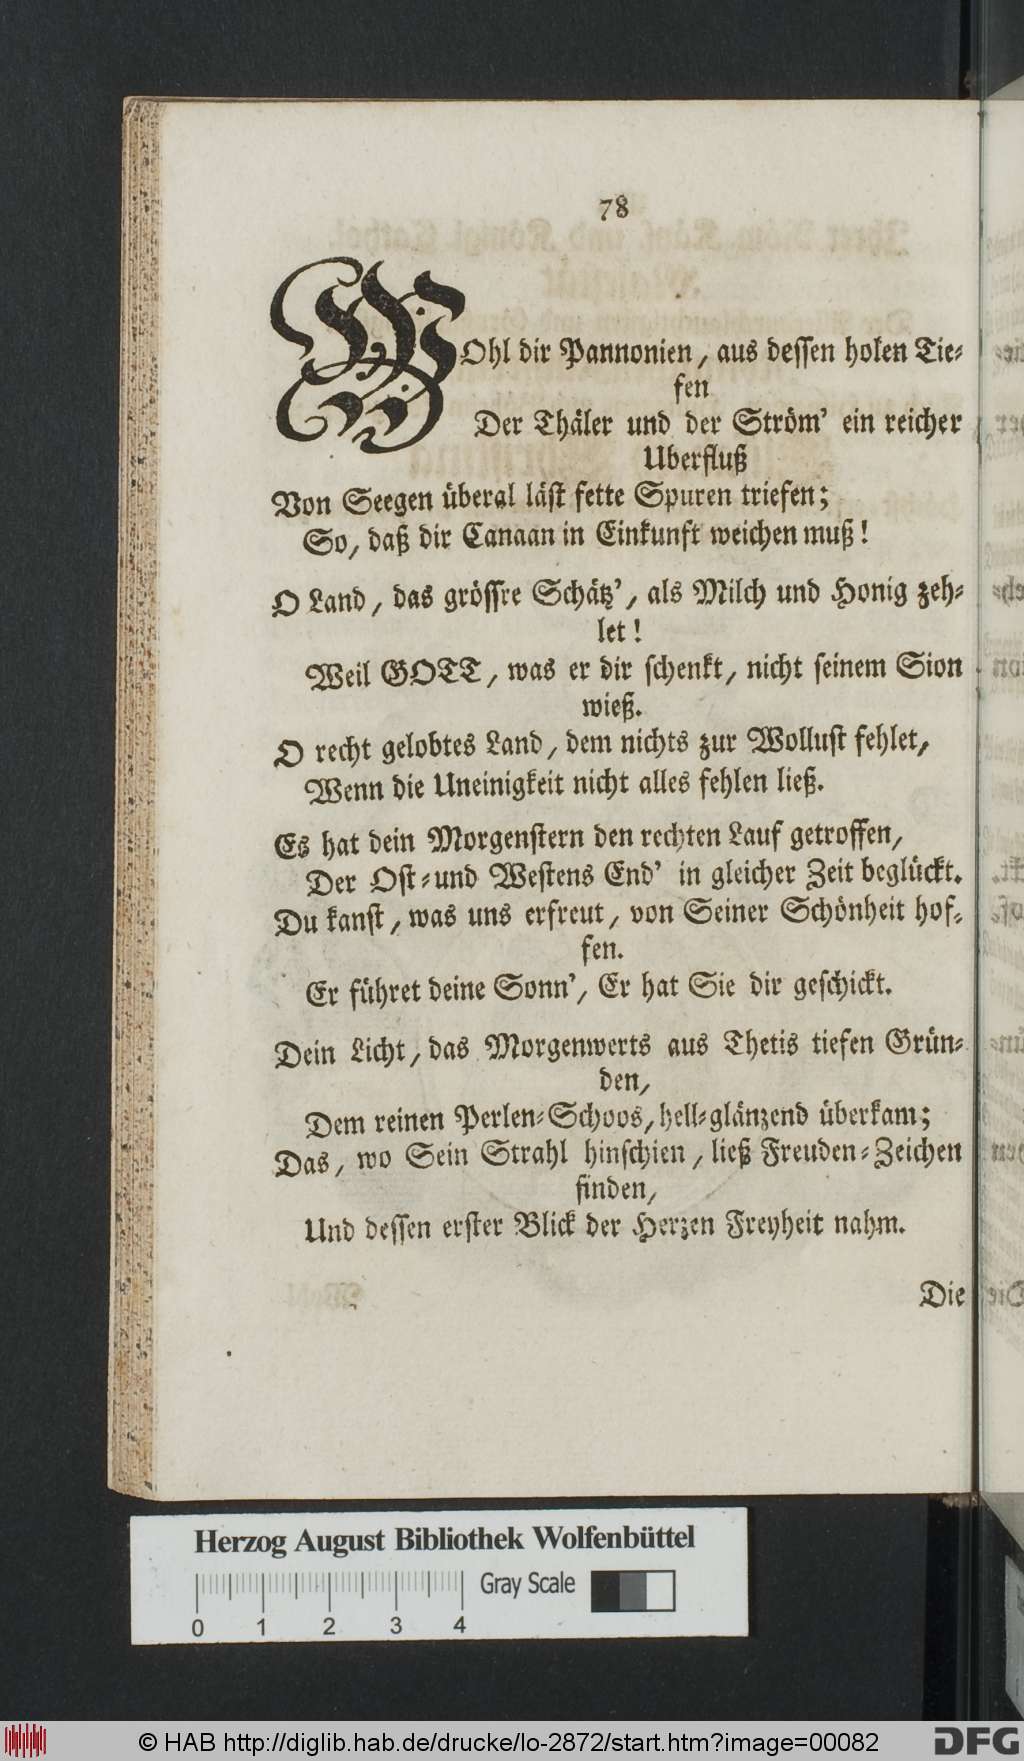 78
WOhl dir Pannonien, aus dessen holen Tie-
fen
Der Thäler und der Ström' ein reicher
Uberfluß
Von Seegen überal läst fette Spuren triefen;
So, daß dir Canaan in Einkunft weichen muß!
O Land, das grössre Schätz', als Milch und Honig zeh-
let!
Weil GOTT, was er dir schenkt, nicht seinem Sion
wieß.
O recht gelobtes Land, dem nichts zur Wollust fehlet,
Wenn die Uneinigkeit nicht alles fehlen ließ.
Es hat dein Morgenstern den rechten Lauf getroffen,
Der Ost-und Westens End' in gleicher Zeit beglückt.
Du kanst, was uns erfreut, von Seiner Schönheit hof-
fen.
Er führet deine Sonn', Er hat Sie dir geschickt.
Dein Licht, das Morgenwerts aus Thetis tiefen Grün-
den,
Dem reinen Perlen-Schoos, hell-glänzend überkam;
Das, wo Sein Strahl hinschien, ließ Freuden-Zeichen
finden,
Und dessen erster Blick der Herzen Freyheit nahm.
Die
Herzog August Bibliothek Wolfenbüttel
Gray Scale
0 1 2 3 4
© HAB http://diglib.hab.de/drucke/lo-2872/start.htm?image=00082
DFG